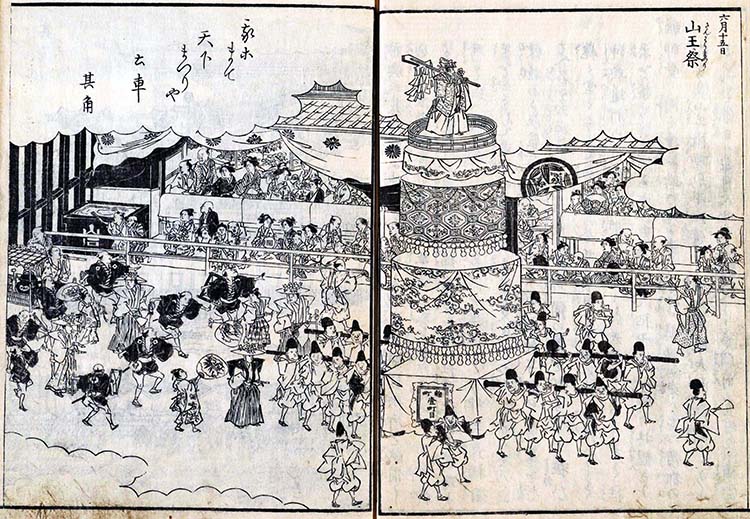 六月十五日
さんわうまつり
山王祭
我等まて
天下
まつりや
土車
其角